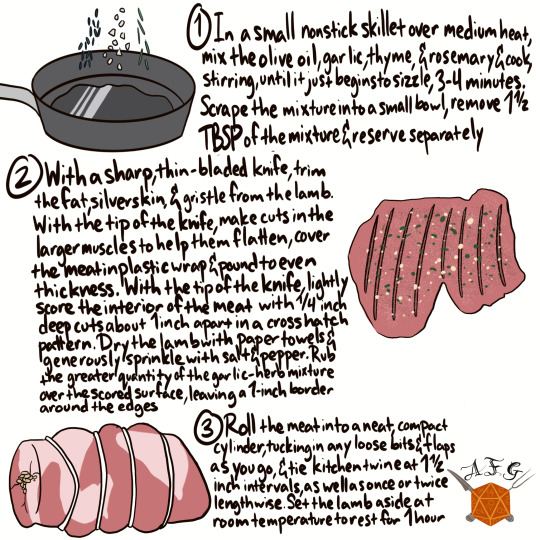 ① In a small nonstick skillet over medium heat,
mix the olive oil, garlic, thyme, & rosemary & cook,
stirring, until it just begins to sizzle, 3-4 minutes.
Scrape the mixture into a small bowl, remove 1½
TBSP of the mixture & reserve separately
② With a sharp, thin-bladed knife, trim
the fat, silverskin, & gristle from the lamb.
With the tip of the knife, make cuts in the
larger muscles to help them flatten, cover
the meat in plastic wrap & pound to even
thickness. With the tip of the knife, lightly
score the interior of the meat with ¼ inch
deep cuts about 1 inch apart in a cross hatch
pattern. Dry the lamb with paper towels &
generously sprinkle with salt & pepper. Rub
the greater quantity of the garlic-herb mixture
over the scored surface, leaving a 1-inch border
around the edges
③ Roll the meat into a neat, compact
cylinder, tucking in any loose bits & flaps
as you go, & tie kitchen twine at 1½
inch intervals, as well as once or twice
lengthwise. Set the lamb aside at
room temperature to rest for 1 hour
A.F.G